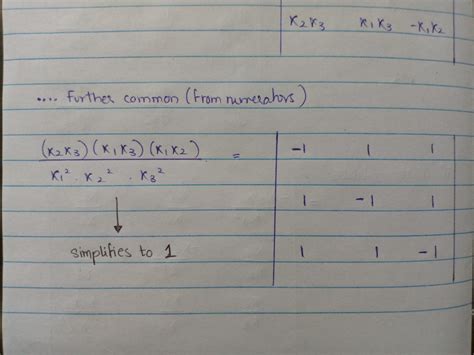 x₂x₃ x₁x₃ -x₁x₂
.... Further common (from numerators)
(x₂x₃)(x₁x₃)(x₁x₂) = -1 1 1
x₁² . x₂² . x₃²
1 -1 1
simplifies to 1
1 1 -1